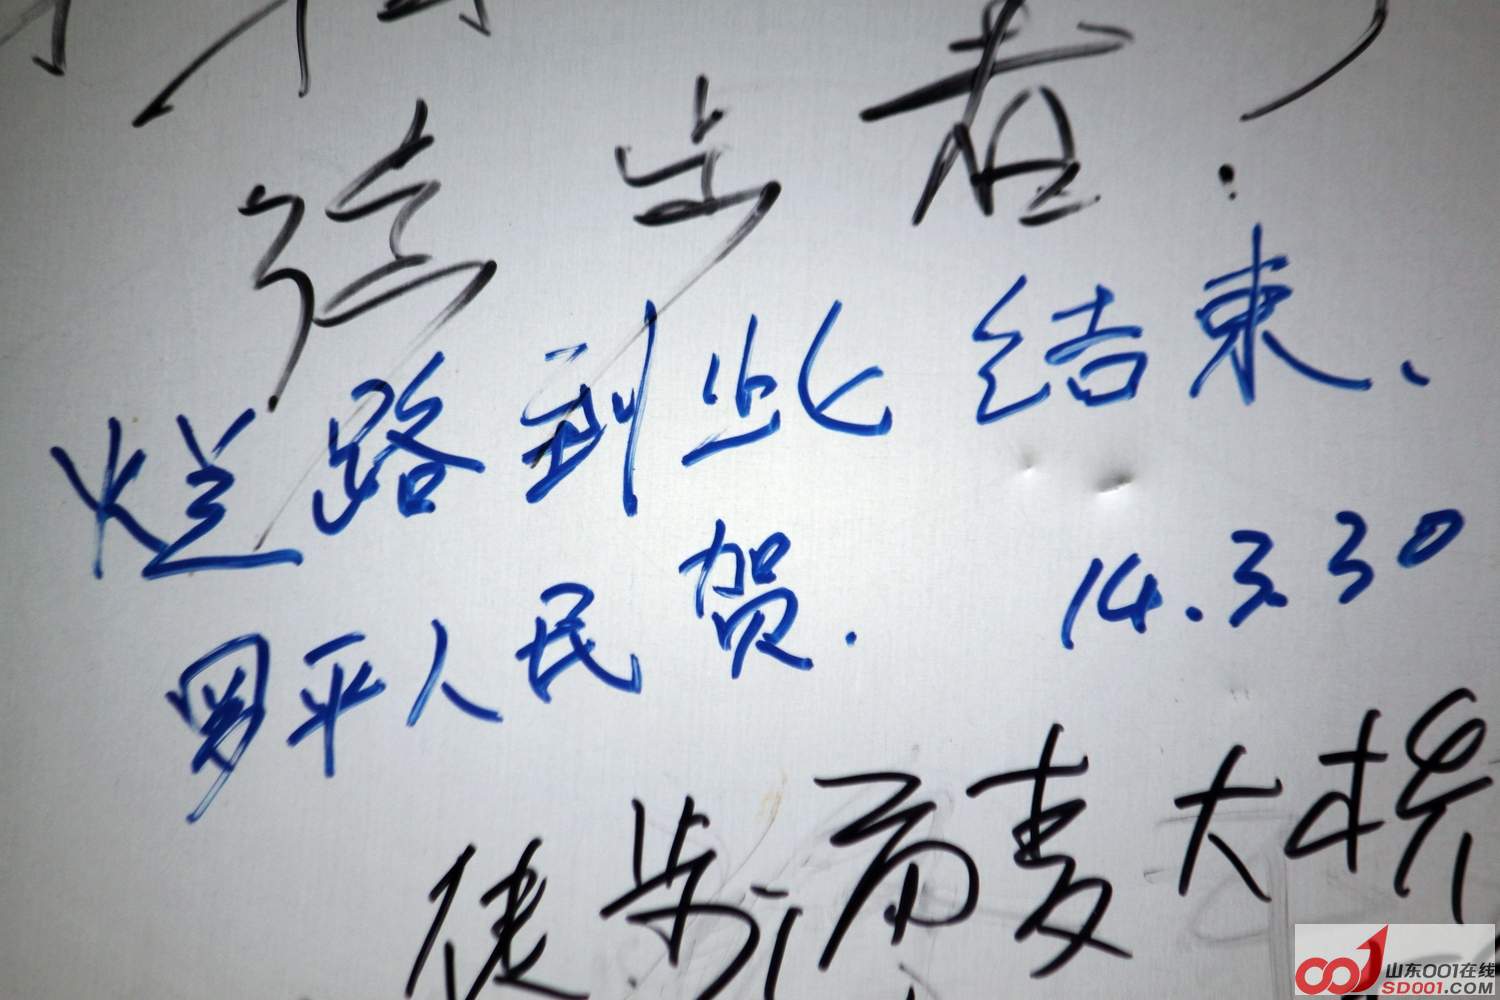 徒步者.
烂路到此结束、
罗平人民贺. 14.3.30
徒步
大桥
山东001在线
SD001.COM